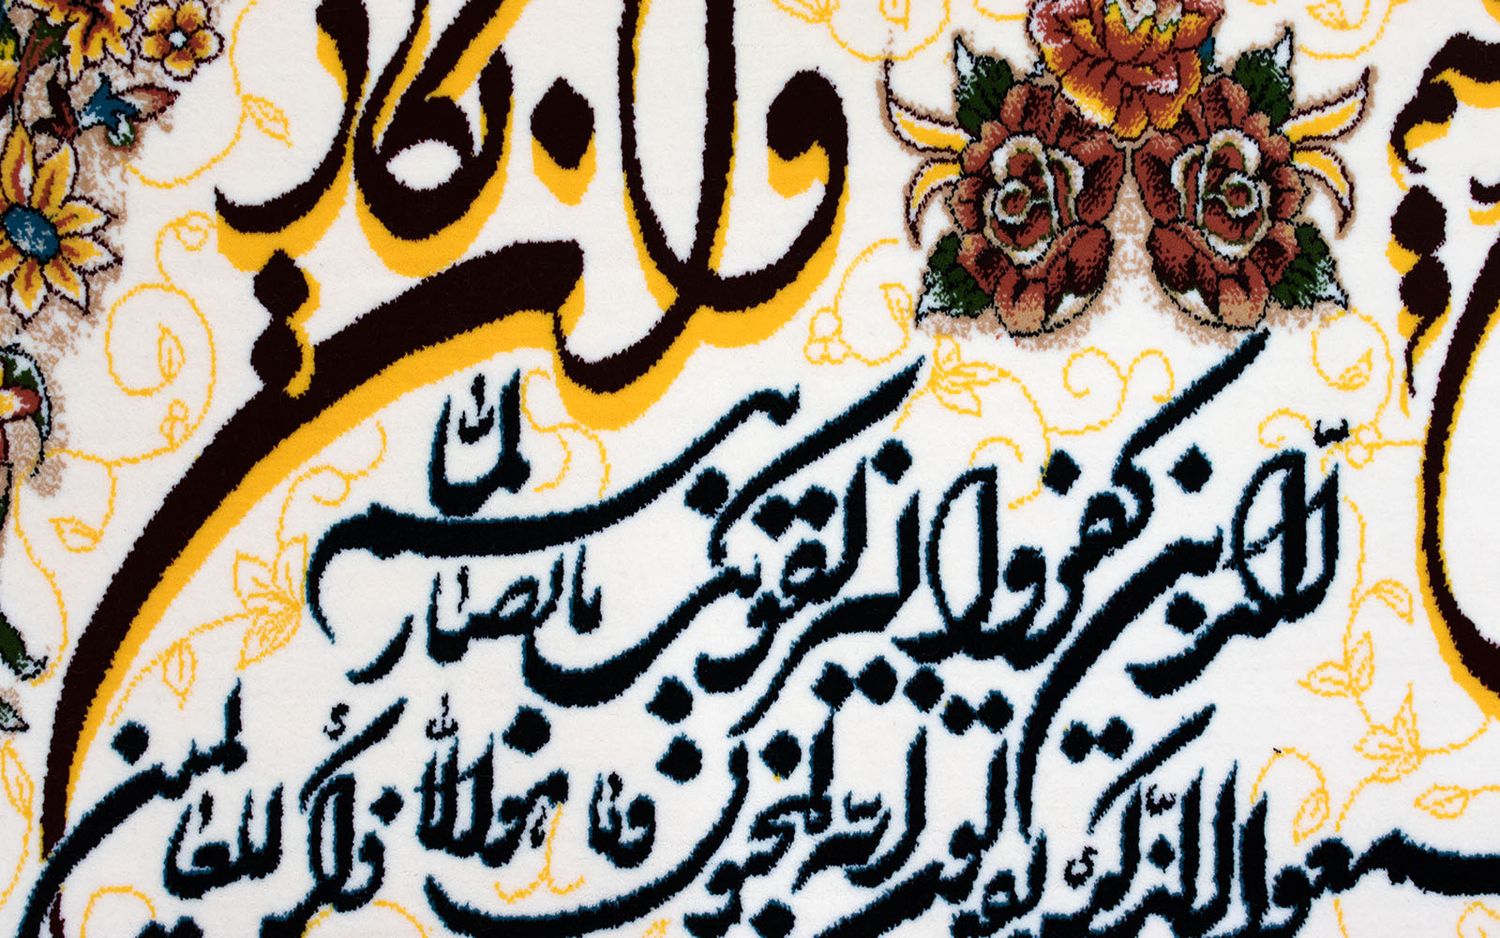 وان یکاد
الذین کفروا لیزلقونک بابصارهم لما
سمعوا الذکر و یقولون انه لمجنون و ما هو الا ذکر للعالمین